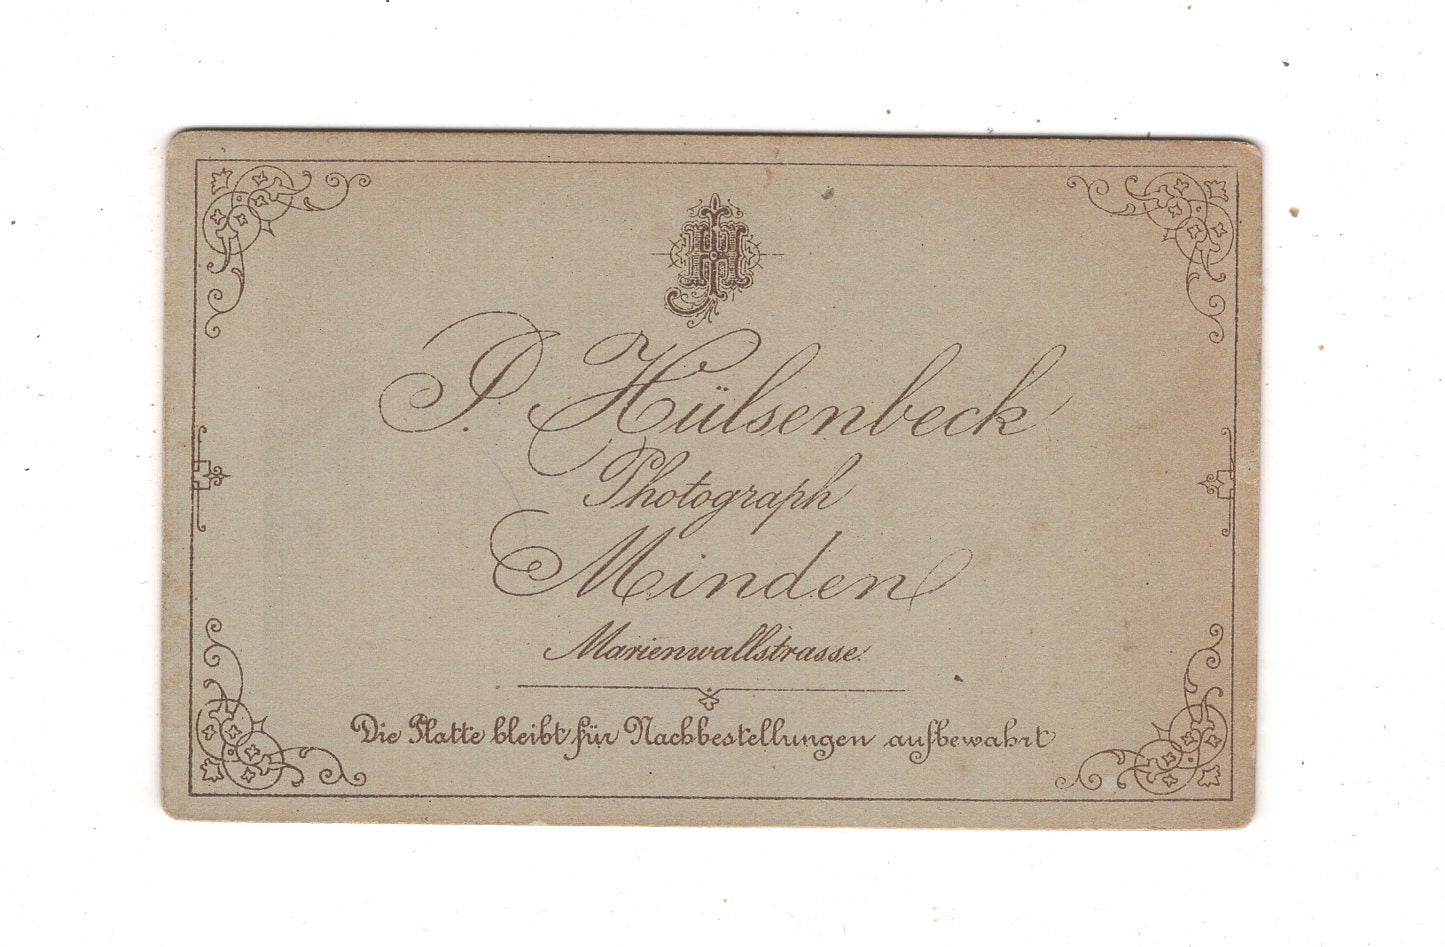 JH
J. Hülsenbeck
Photograph
Minden
Marienwallstrasse.
Die Platte bleibt für Nachbestellungen aufbewahrt